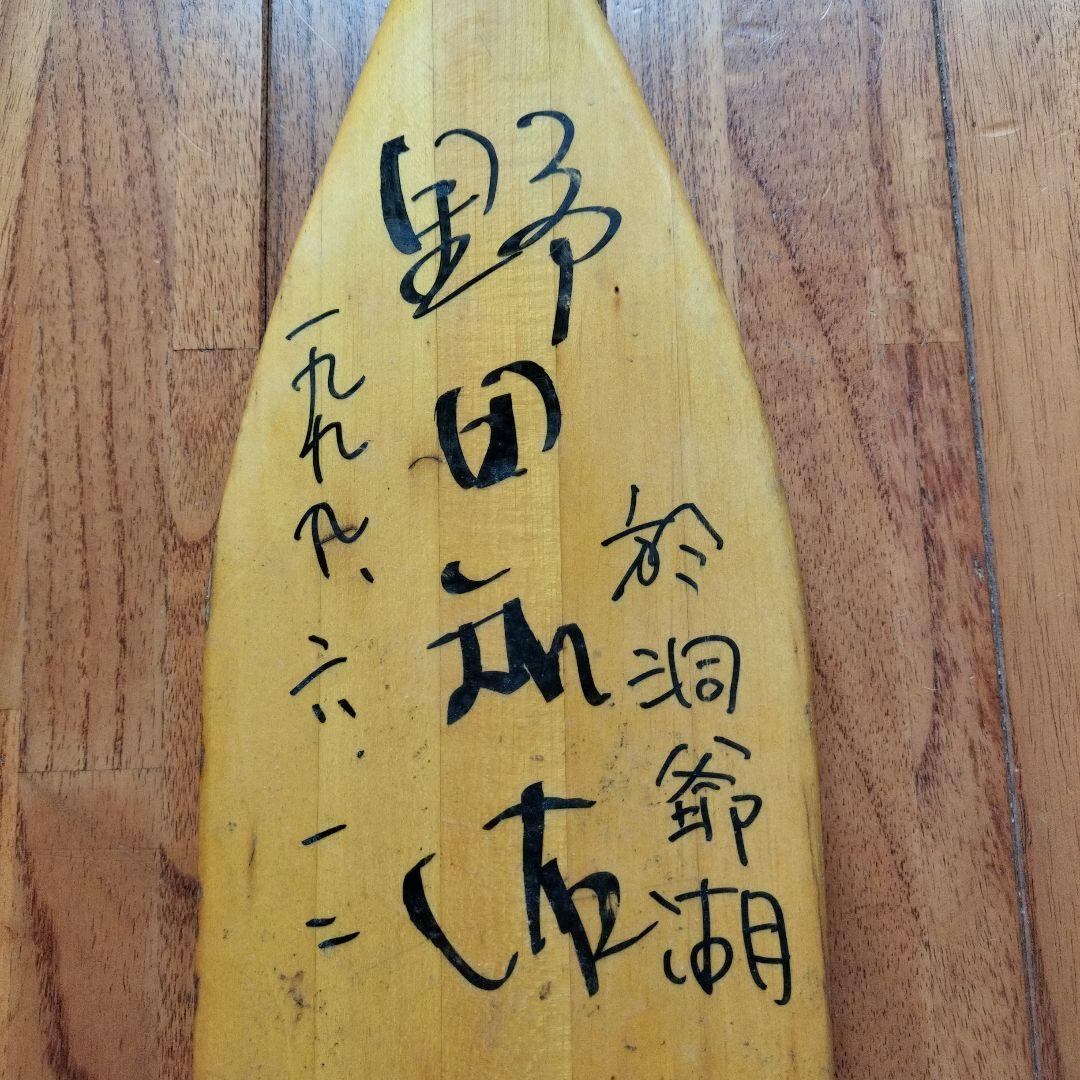 於洞爺湖
野田知佑
一九九九、六.一二